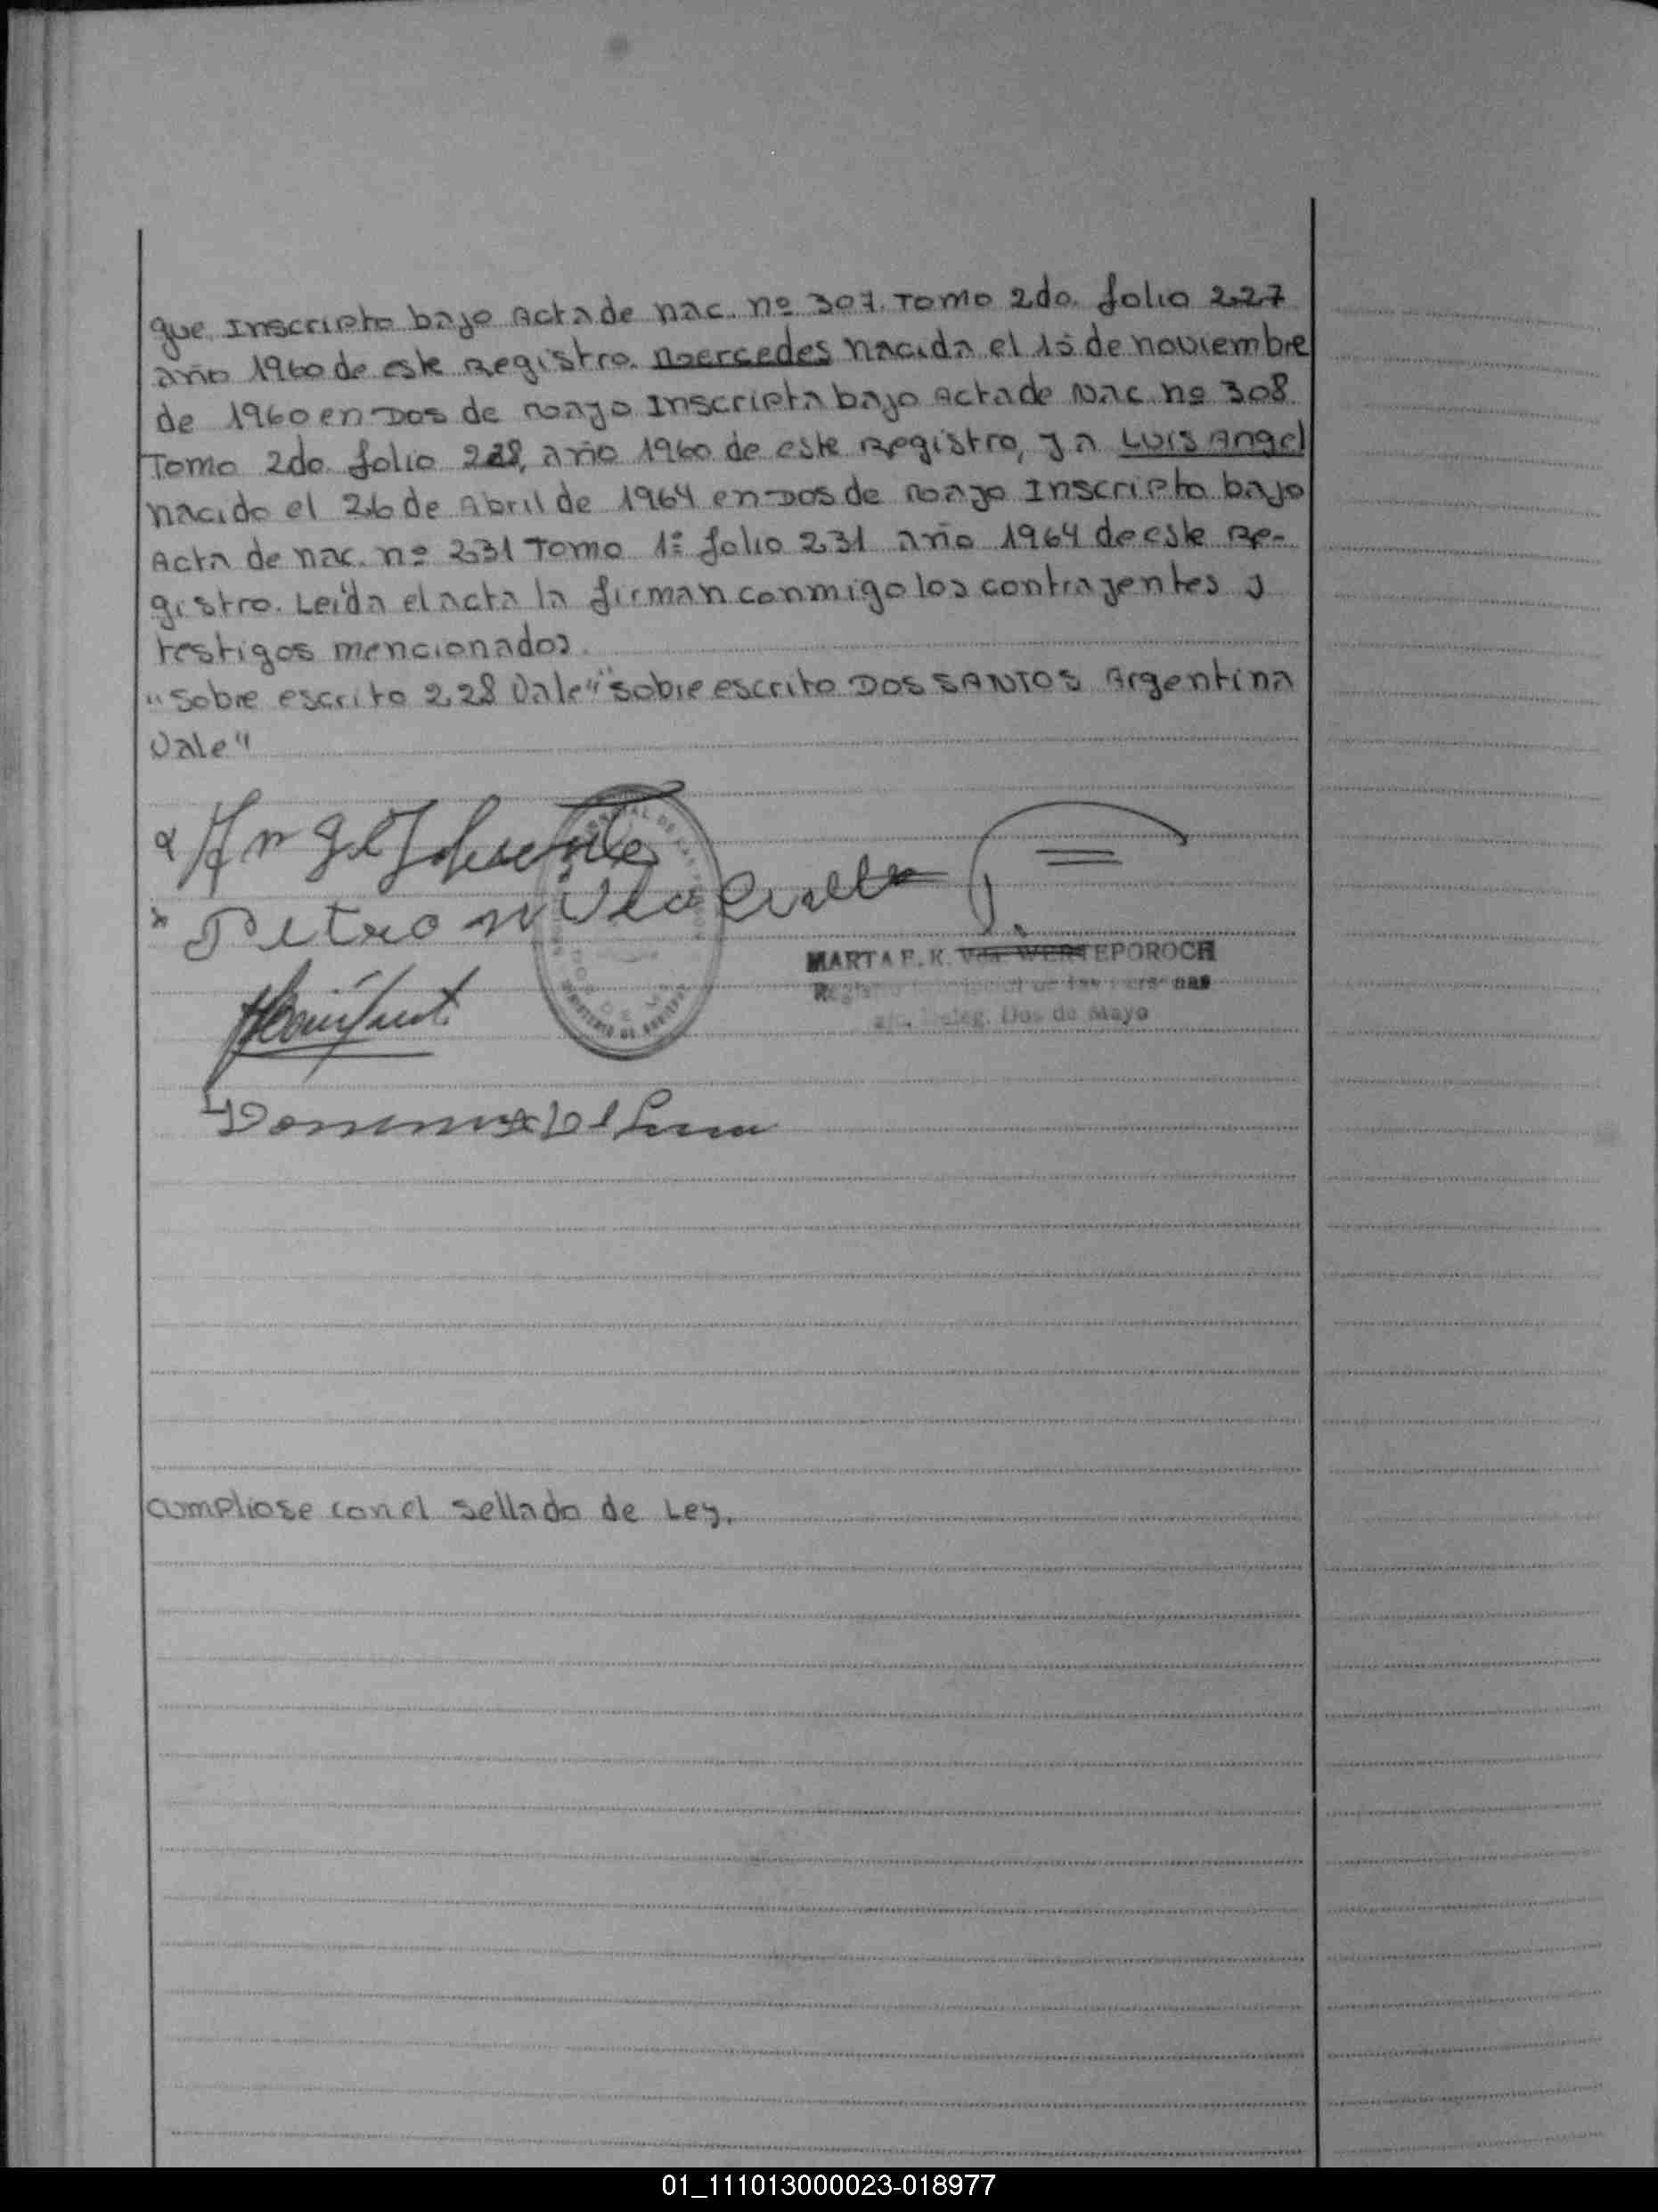 que Inscripto bajo Acta de nac. nº 307. Tomo 2do. folio 227
año 1960 de este Registro. Mercedes nacida el 15 de noviembre
de 1960 en Dos de Mayo Inscripta bajo Acta de Nac. nº 308
Tomo 2do folio 228, año 1960 de este Registro, y a Luis Angel
nacido el 26 de Abril de 1964 en Dos de Mayo Inscripto bajo
Acta de nac. nº 231 Tomo 1º folio 231 año 1964 de este Re-
gistro. Leída el acta la firman conmigo los contrayentes y
testigos mencionados.
"Sobre escrito 228 Vale" "Sobre escrito DOS SANTOS Argentina
Vale"
MARTA E. K. TEPOROCH
Deleg. Dos de Mayo
cumpliose con el sellado de Ley.
01_111013000023-018977